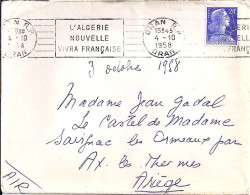 ORAN R.P.
4-10
ORAN
L'ALGERIE
NOUVELLE
VIVRA FRANÇAISE
ORAN R.P.
13H45
4-10
1958
ORAN
3 octobre 1958
Madame Jean Gadal
Le Castel de Madame
Savignac les Ormeaux par
Ax. les Thermes
Ariège
AIR